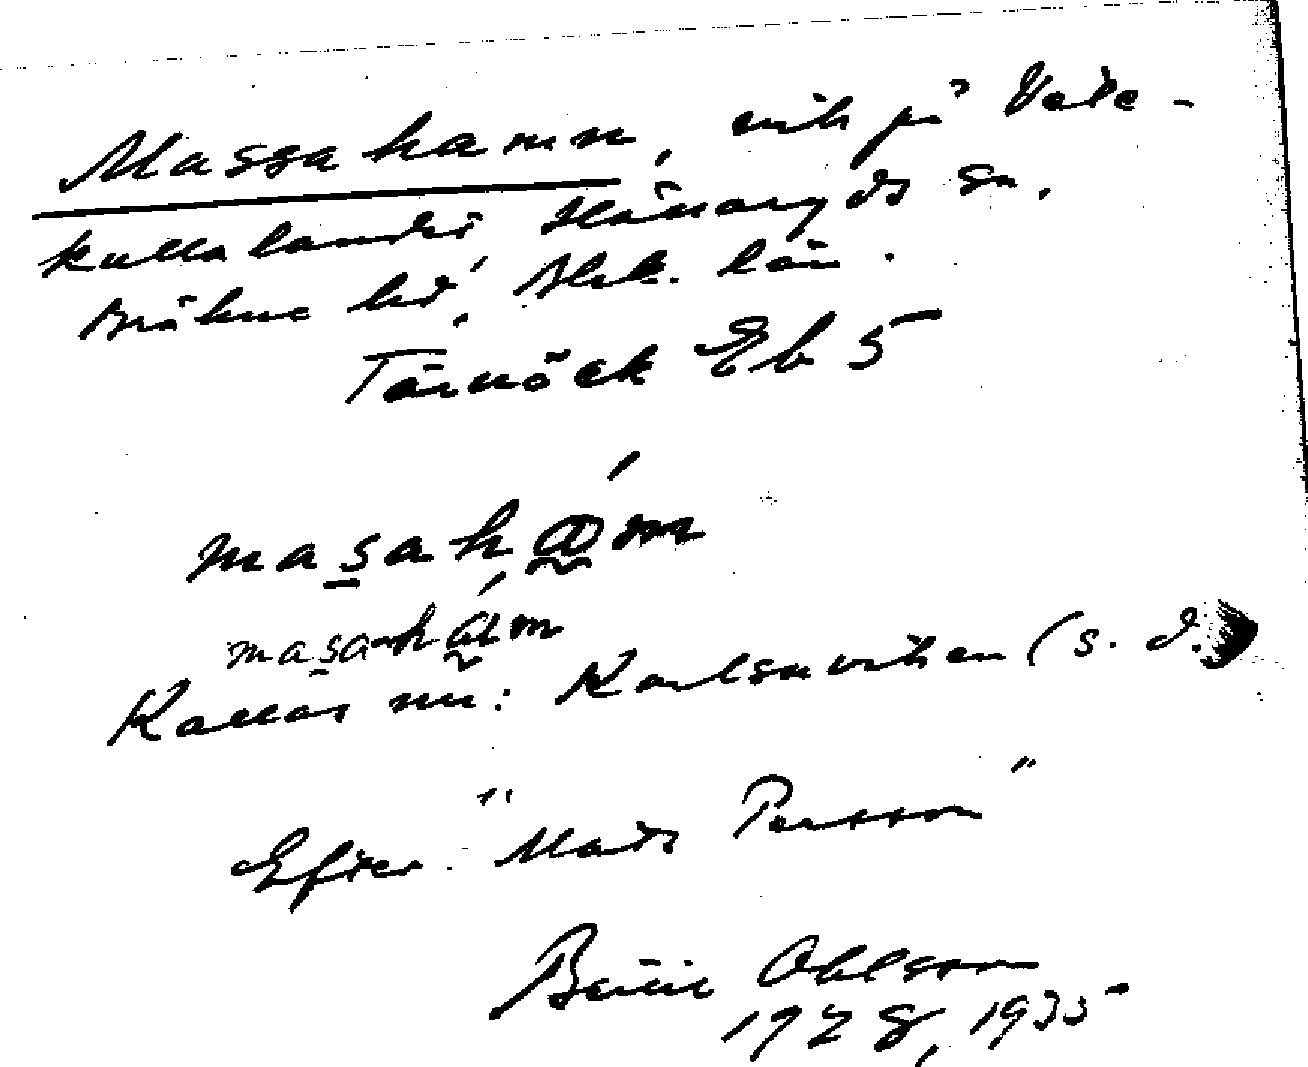 Massahamn, vik på Vete-
kullalandet, Hällaryds sn,
Bräkne hd, Blek. län.
Tärnöck Eb 5
masahamn
masaham
Kallas nu: Karlsnviken (s. d.)
Efter "Mats Persson"
Bertil Ohlsson
1928, 1935